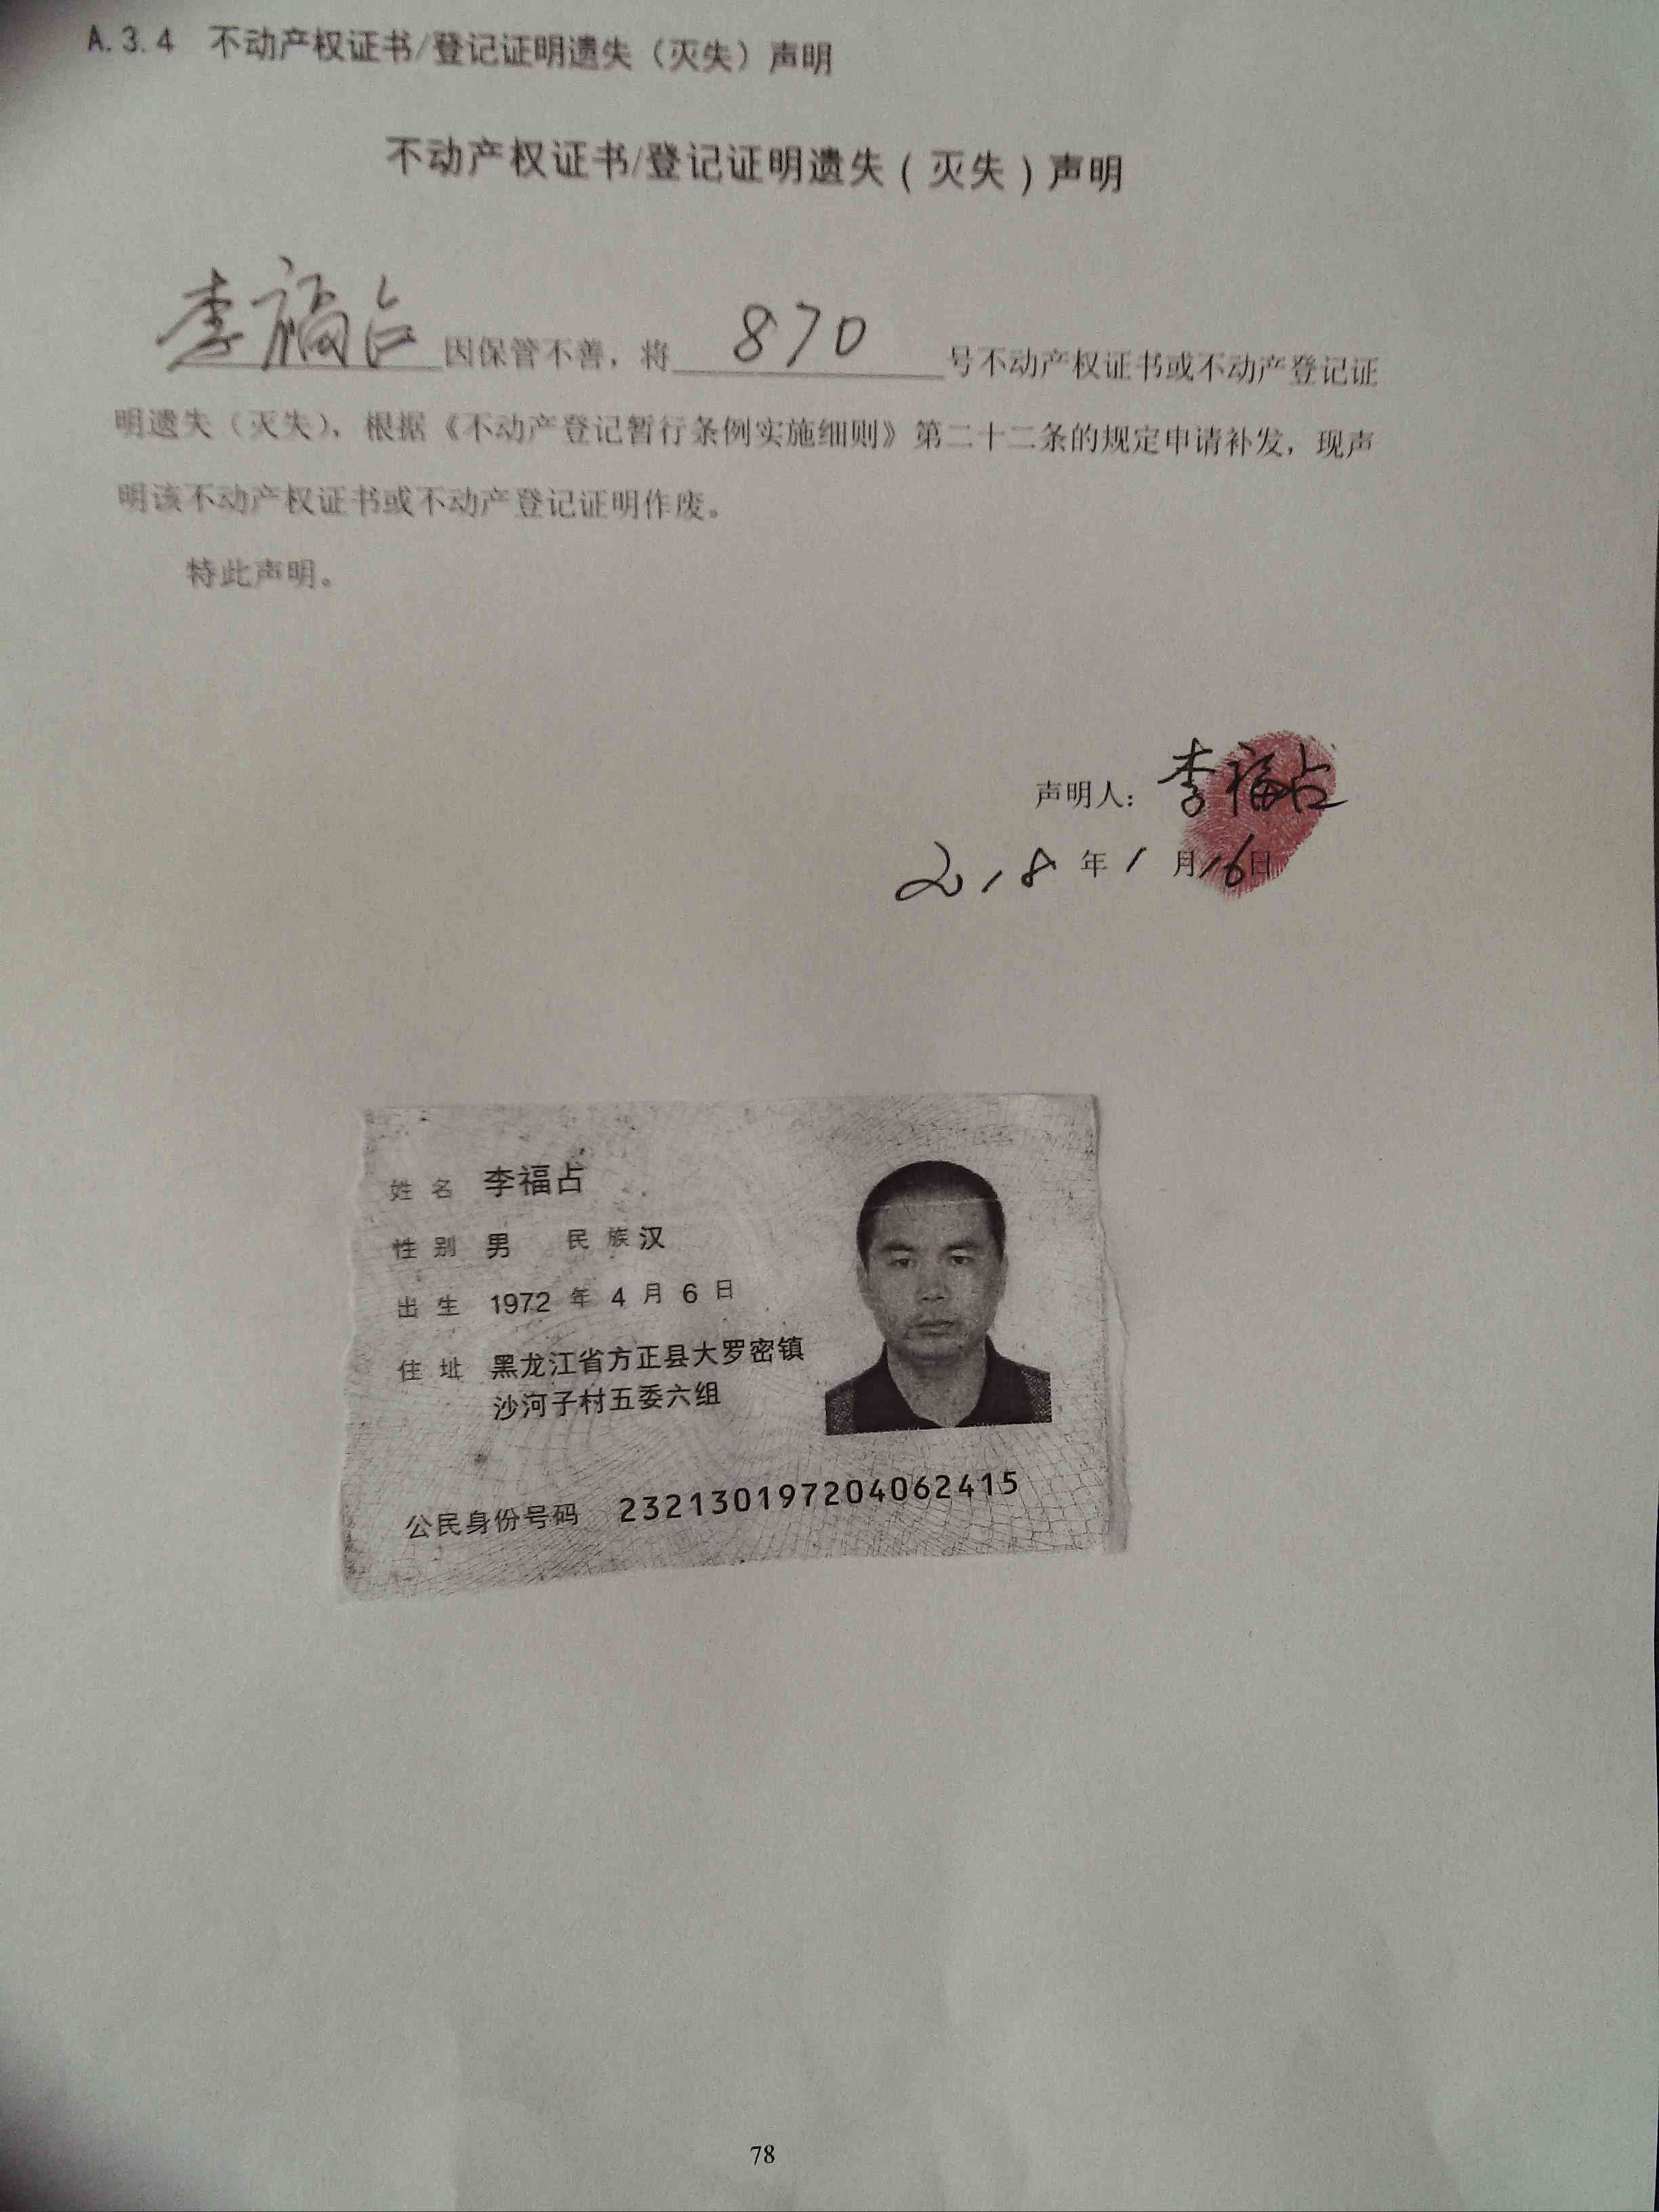 A.3.4 不动产权证书/登记证明遗失（灭失）声明
不动产权证书/登记证明遗失(灭失)声明
李福占因保管不善，将870号不动产权证书或不动产登记证
明遗失（灭失），根据《不动产登记暂行条例实施细则》第二十二条的规定申请补发，现声
明该不动产权证书或不动产登记证明作废。
特此声明。
声明人：李福占
2018年1月16日
姓名 李福占
性别 男 民族 汉
出生 1972年4月6日
住址 黑龙江省方正县大罗密镇
沙河子村五委六组
公民身份号码 232130197204062415
78